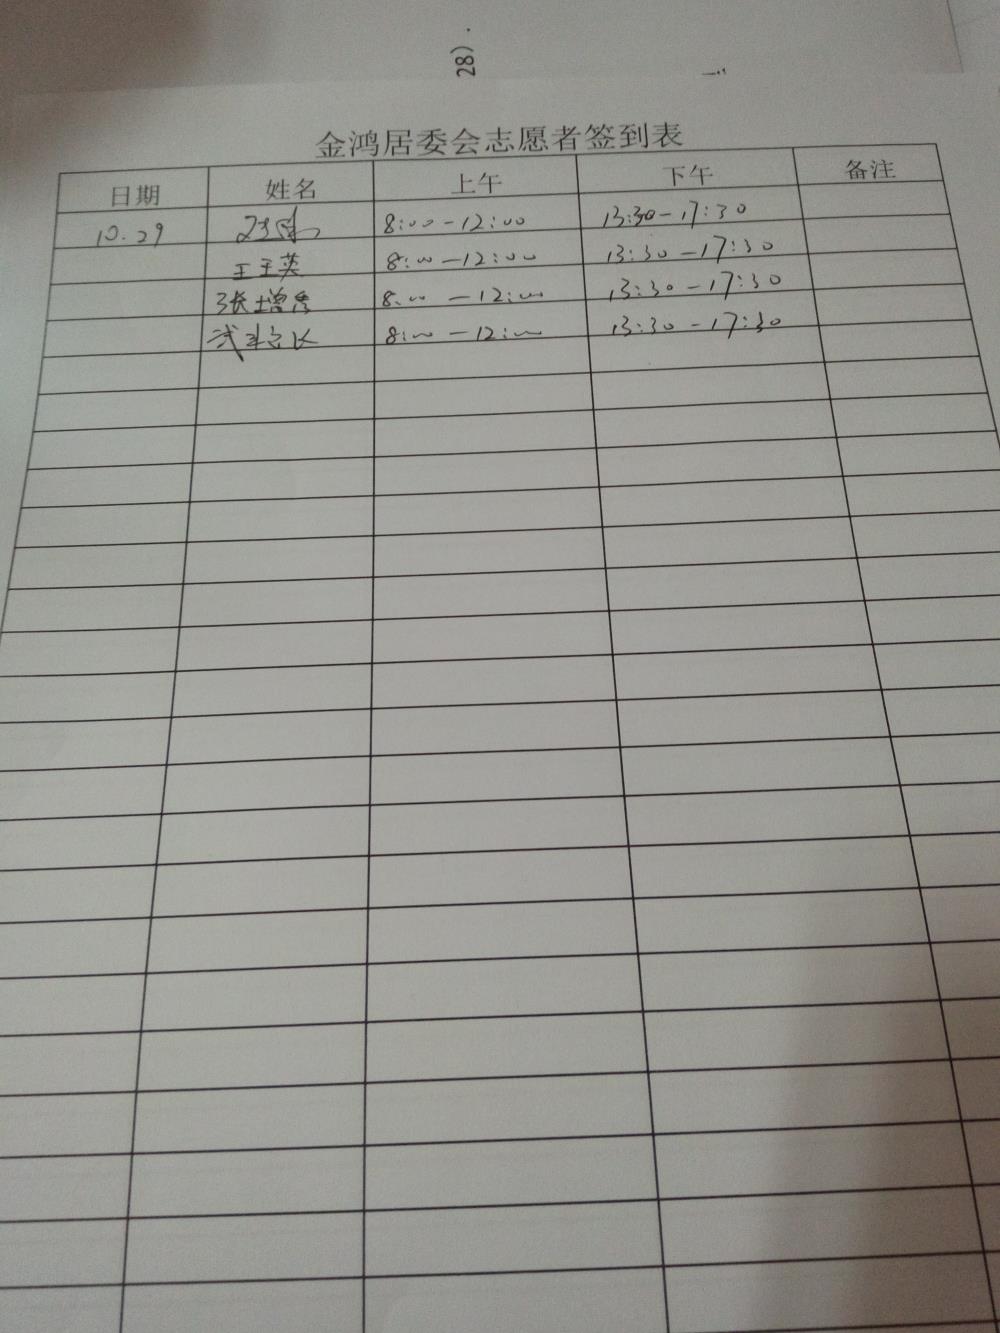 28).
金鸿居委会志愿者签到表
日期 姓名 上午 下午 备注
10.29 8:00-12:00 13:30-17:30
王玉英 8:00-12:00 13:30-17:30
张增 8:00-12:00 13:30-17:30
8:00-12:00 13:30-17:30